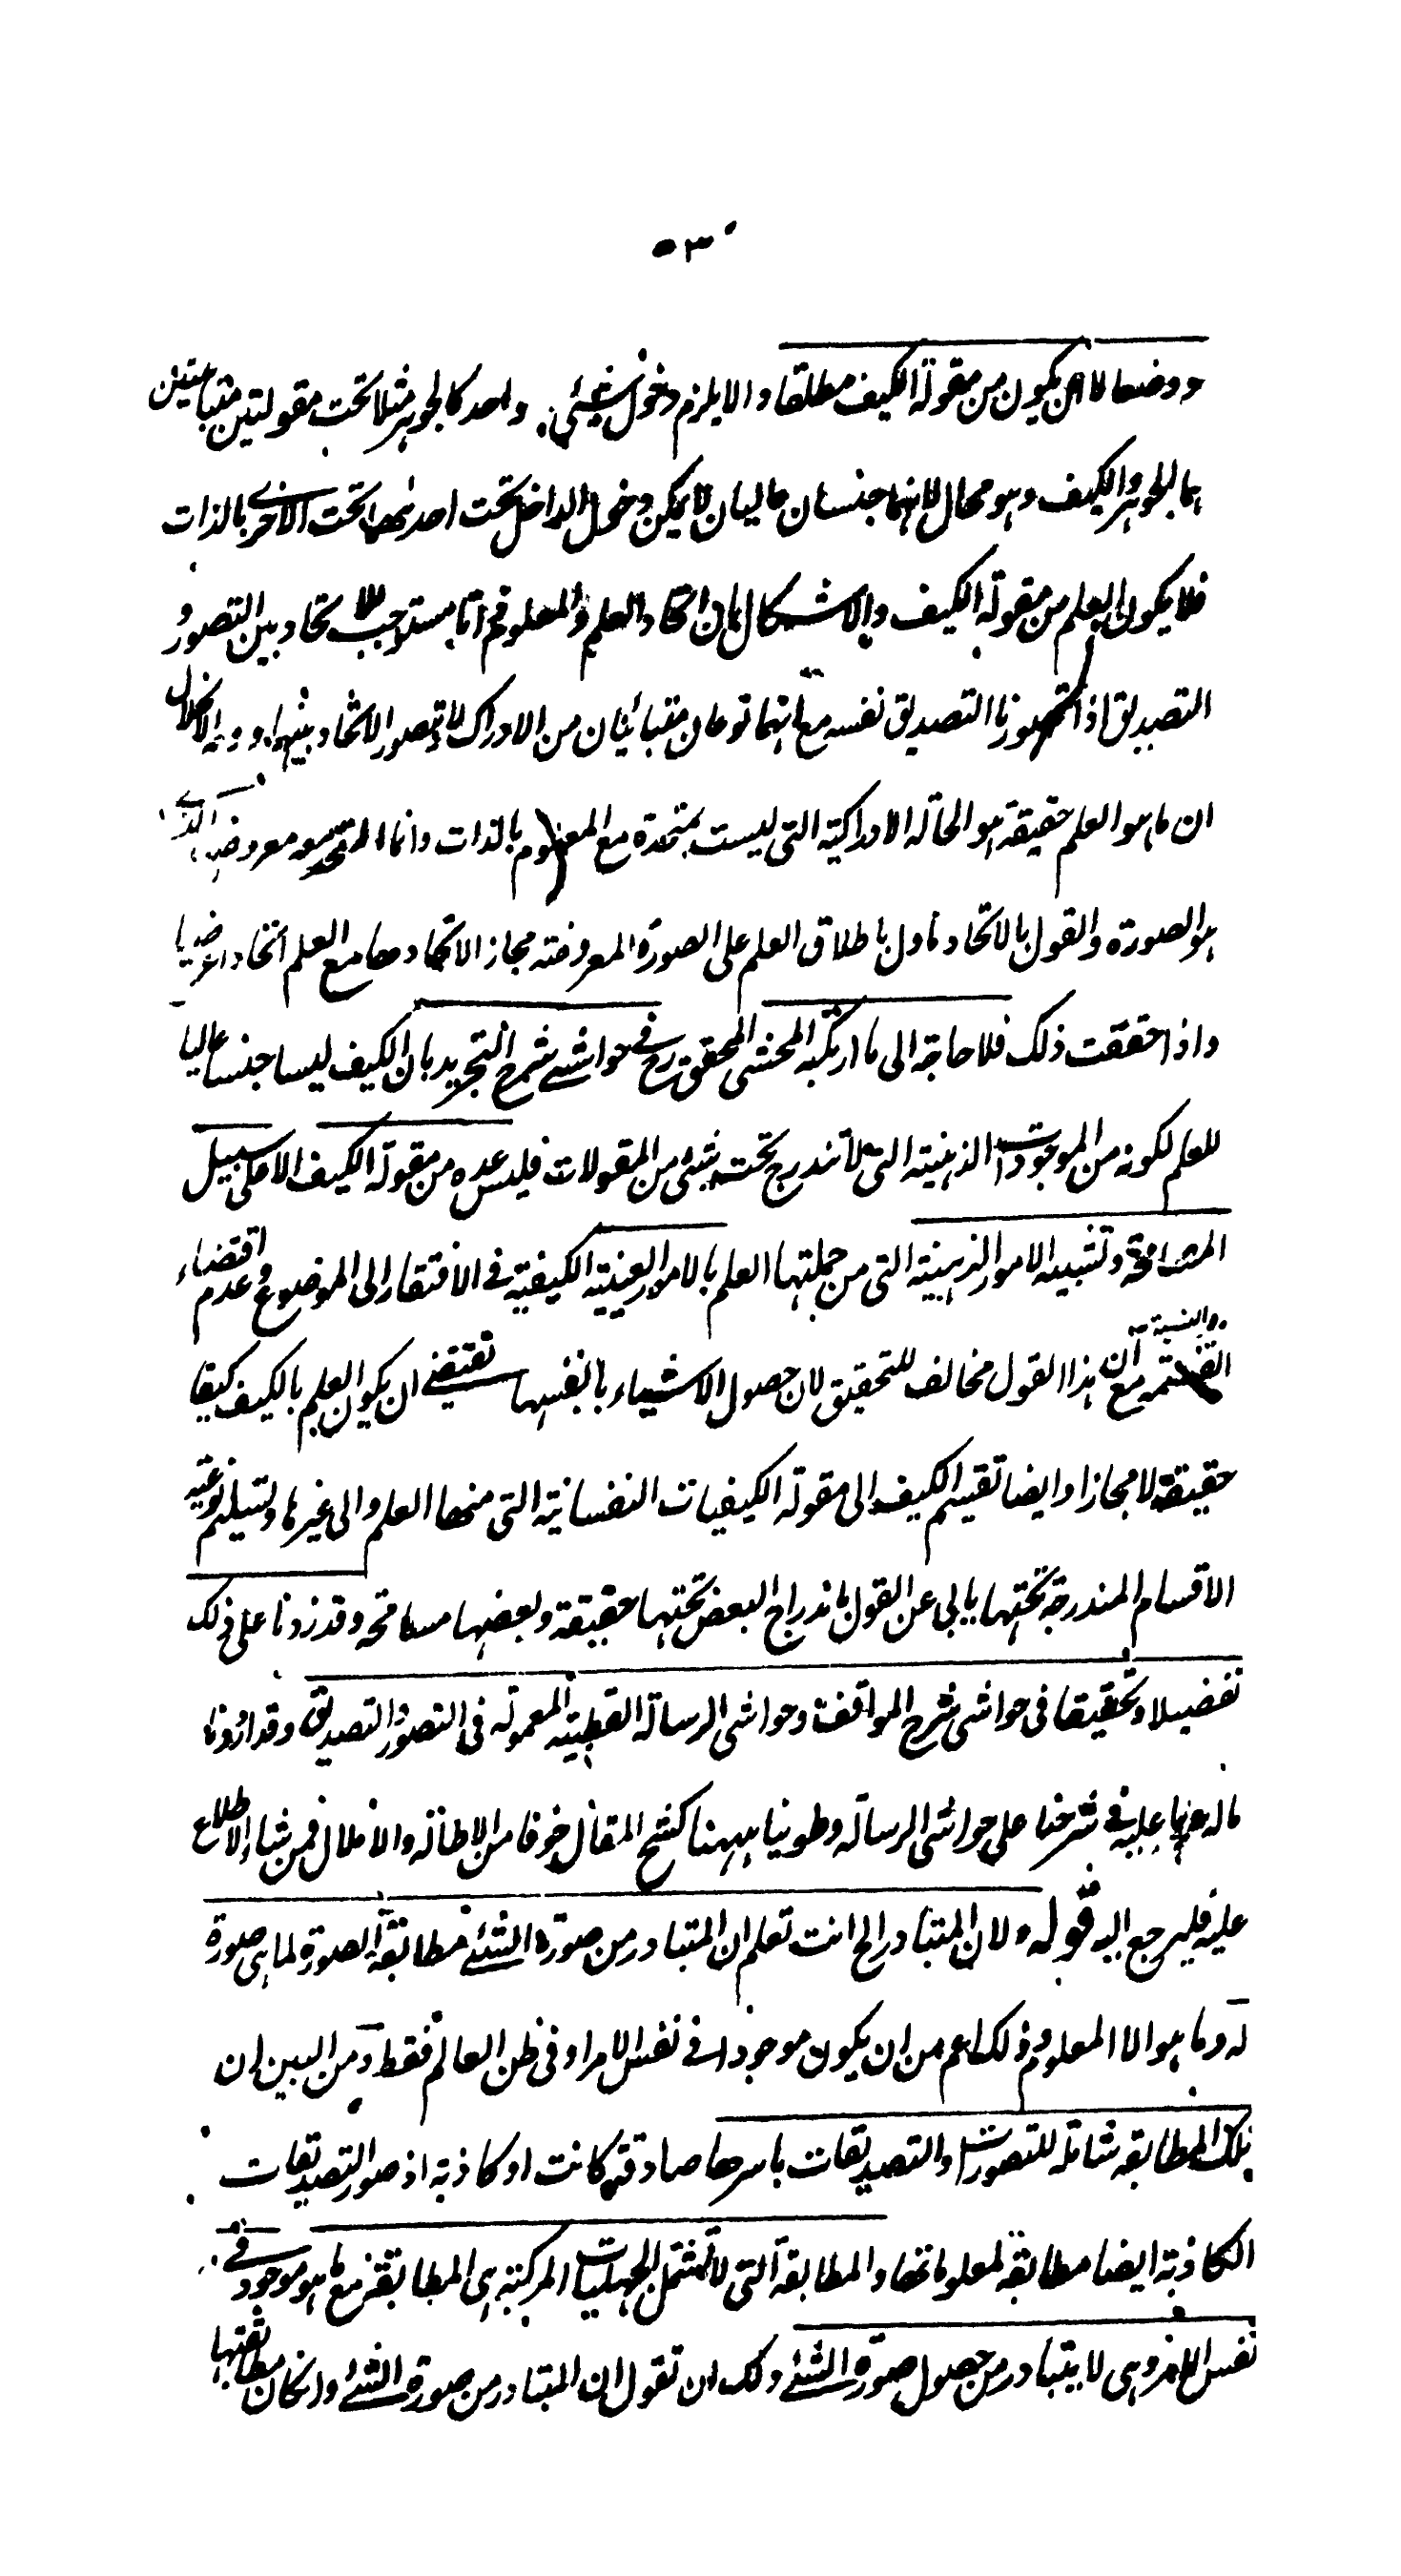 ٣٠
ووضعا لا ان يكون من مقولة الكيف مطلقا والا يلزم دخول شيئ واحد كالجوهر مثلا تحت مقولتين متباينتين
هما الجوهر والكيف وهو محال لانهما جنسان عاليان لا يمكن دخول الداخل تحت احدهما تحت الاخرے بالذات
فلا يكون العلم من مقولة الكيف والاشكال بان اتحاد العلم والمعلوم ذاتا مستوجب للاتحاد بين التصور و
التصديق اذا تصورنا التصديق نفسه مع انهما نوعان متبائنان من الادراك لا يتصور الاتحاد بينهما ووجه الانحلال
ان ما هو العلم حقيقة هو الحالة الادراكية التى ليست بمتحدة مع المعلوم بالذات وانما المتحد معه معروضها الذے
هو الصورة والقول بالاتحاد ماول باطلاق العلم على الصورة المعروضة مجازا لاتحادها مع العلم اتحادا عرضيا
واذا حققت ذلك فلا حاجة الى ما ارتكبه المحشى المحقق رح فے حواشے شرح التجريد بان الكيف ليسا جنسا عاليا
للعلم لكونه من الموجودات الذهنية التى لا تندرج تحت شيئ من المقولات فليس عده من مقولة الكيف الا على سبيل
المسامحة وتشبيه الامور الذهنية التى من جملتها العلم بالامور العينية الكيفية فے الافتقار الى الموضوع وعدم اقتضاء
القسمة والنسبة مع ان هذا القول مخالف للتحقيق لان حصول الاشياء بانفسها تقتضے ان يكون العلم بالكيف كيفا
حقيقة لا مجازا وايضا تقسيم الكيف الى مقولة الكيفيات النفسانية التى منها العلم والى غيرها وتسليم نوعية
الاقسام المندرجة تحتها يابى عن القول باندراج البعض تحتها حقيقة وبعضها مسامحة وقد زدنا على ذلك
تفصيلا وتحقيقا فى حواشى شرح المواقف وحواشى الرسالة القطبية المعمولة فى التصور والتصديق وقد اوردنا
ماله وما عليه فے شرحنا على حواشى الرسالة وطوينا ههنا كشح المقال خوفا من الاطالة والاملال فمن شاء الاطلاع
عليه فليرجع اليه قوله لان المتبادر الخ انت تعلم ان المتبادر من صورة الشئے مطابقة الصورة لما هى صورة
له وما هو الا المعلوم وذلك اعم من ان يكون موجودا فے نفس الامر او فى ظن العالم فقط ومن البين ان
تلك المطابقة شاملة للتصورات والتصديقات باسرها صادقة كانت او كاذبة اذ صور التصديقات
الكاذبة ايضا مطابقة لمعلوماتها والمطابقة التى لا تشتمل الجهليات المركبة هى المطابقة مع ما هو موجود فے
نفس الامر وهى لا يتبادر من حصول صورة الشئے ولك ان تقول ان المتبادر من صورة الشئے وان كان مطابقتها